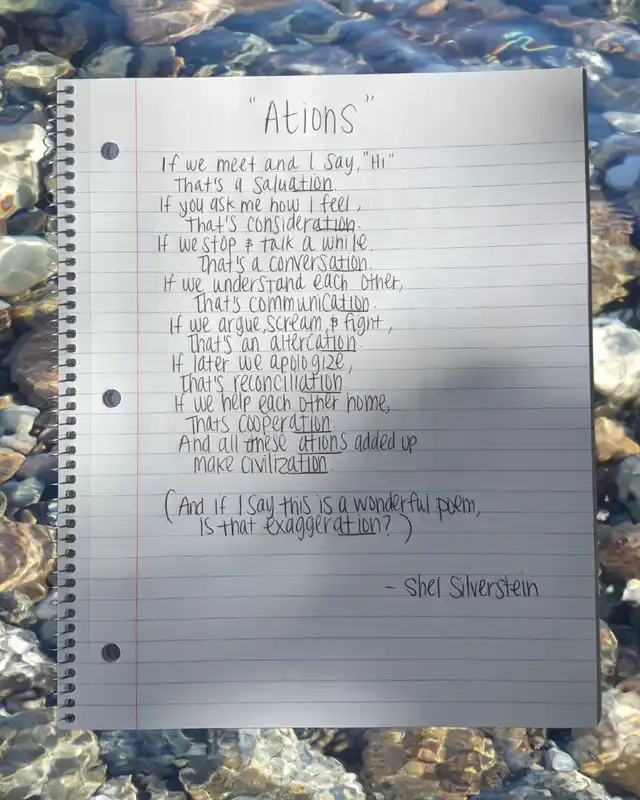 "Ations"
If we meet and I say, "Hi"
That's a saluation.
If you ask me how I feel,
That's consideration.
If we stop & talk a while,
That's a conversation.
If we understand each other,
That's communication.
If we argue, scream, & fight,
That's an altercation.
If later we apologize,
That's reconciliation.
If we help each other home,
Thats cooperation.
And all these ations added up
make civilization.
(And if I say this is a wonderful poem,
Is that exaggeration?)
- Shel Silverstein